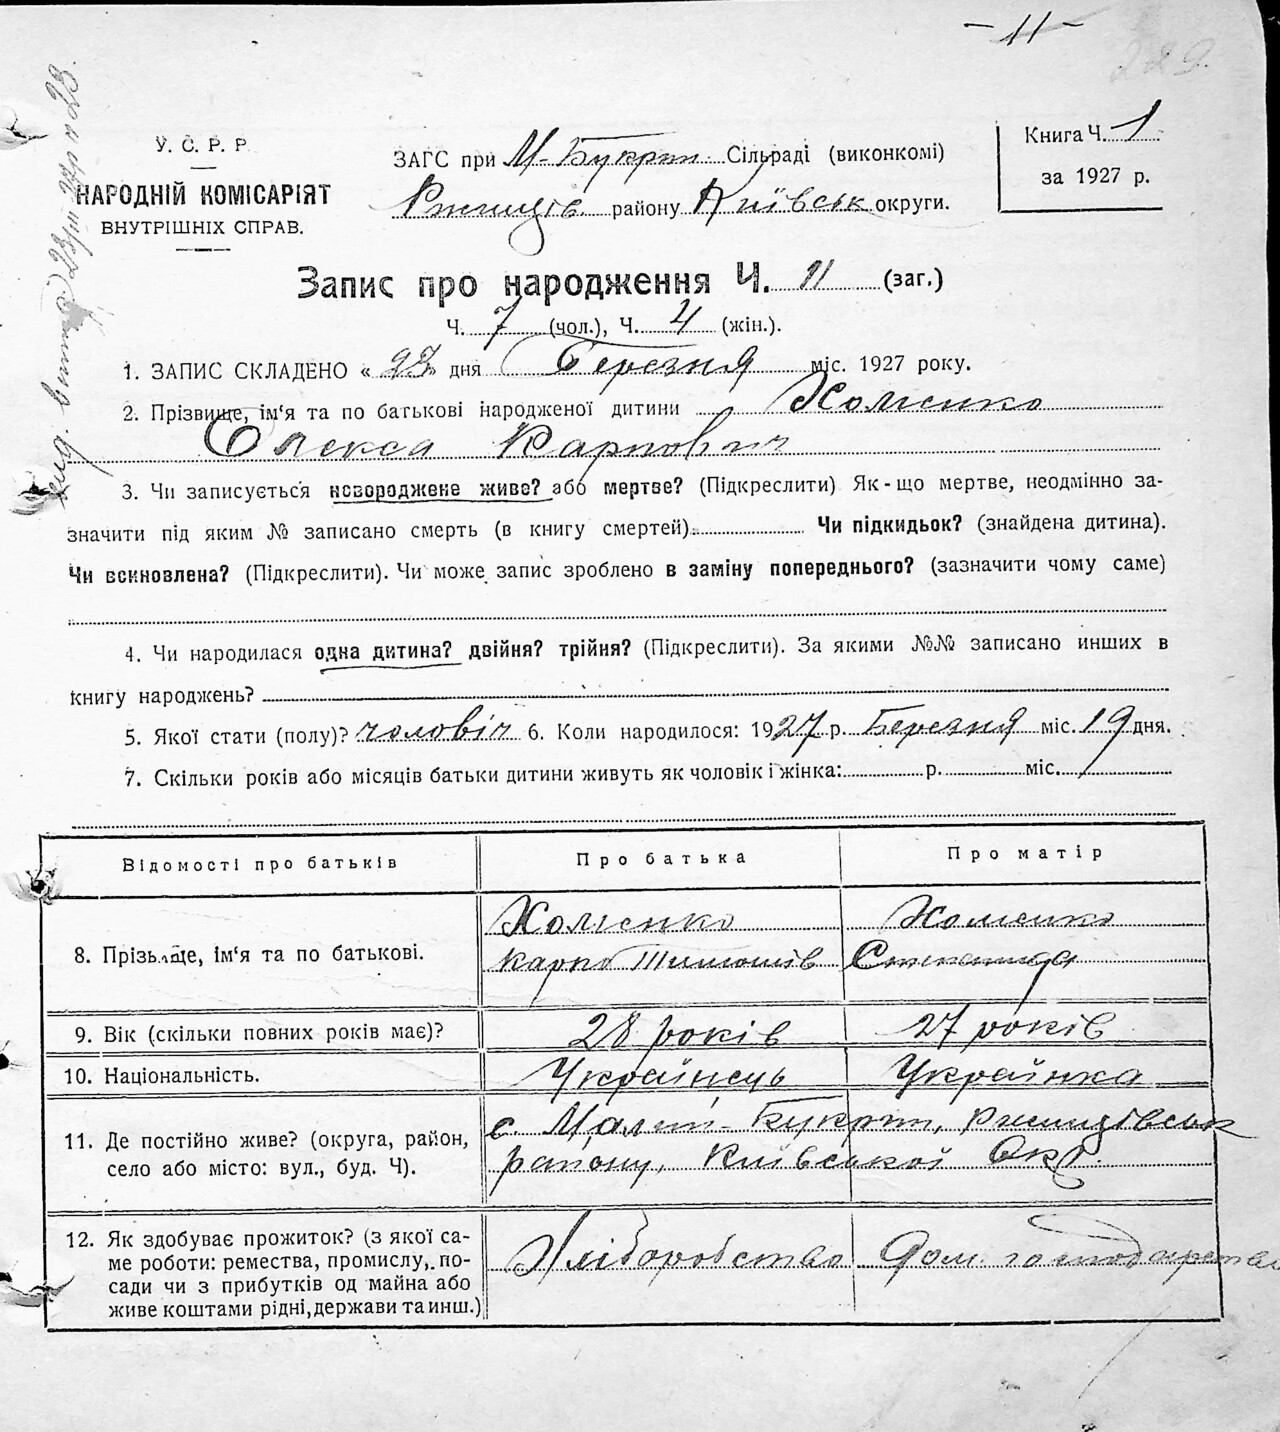 - 11 -
229.
У. С. Р. Р
НАРОДНІЙ КОМІСАРІЯТ
ВНУТРІШНІХ СПРАВ.
ЗАГС при М-Букрин. Сільраді (виконкомі)
Ржищів. району Київськ округи.
Книга Ч. 1
за 1927 р.
Запис про народження Ч. 11 (заг.)
Ч. 7 (чол.), Ч. 4 (жін.).
1. ЗАПИС СКЛАДЕНО « 23 » дня Березня міс. 1927 року.
2. Прізвище, ім‘я та по батькові народженої дитини Хоменко
Олекса Карпович
3. Чи записується новороджене живе? або мертве? (Підкреслити) Як-що мертве, неодмінно за-
значити під яким № записано смерть (в книгу смертей) Чи підкидьок? (знайдена дитина).
Чи всиновлена? (Підкреслити). Чи може запис зроблено в заміну попереднього? (зазначити чому саме)
4. Чи народилася одна дитина? двійня? трійня? (Підкреслити). За якими №№ записано инших в
книгу народжень?
5. Якої стати (полу)? чоловіч 6. Коли народилося: 1927 р. Березня міс. 19 дня.
7. Скільки років або місяців батьки дитини живуть як чоловік і жінка: р. міс.
Відомості про батьків
Про батька
Про матір
8. Прізвище, ім‘я та по батькові.
Хоменко
Карпо Тимошів
Хоменко
Степанида
9. Вік (скільки повних років має)?
28 років
27 років
10. Національність.
Українець
Українка
11. Де постійно живе? (округа, район,
село або місто: вул., буд. Ч).
с. Малий-Букрин, Ржищівськ
району, Київської Окр.
12. Як здобуває прожиток? (з якої са-
ме роботи: ремества, промислу, по-
сади чи з прибутків од майна або
живе коштами рідні, держави та инш.)
Хліборобство
Дом. господарства